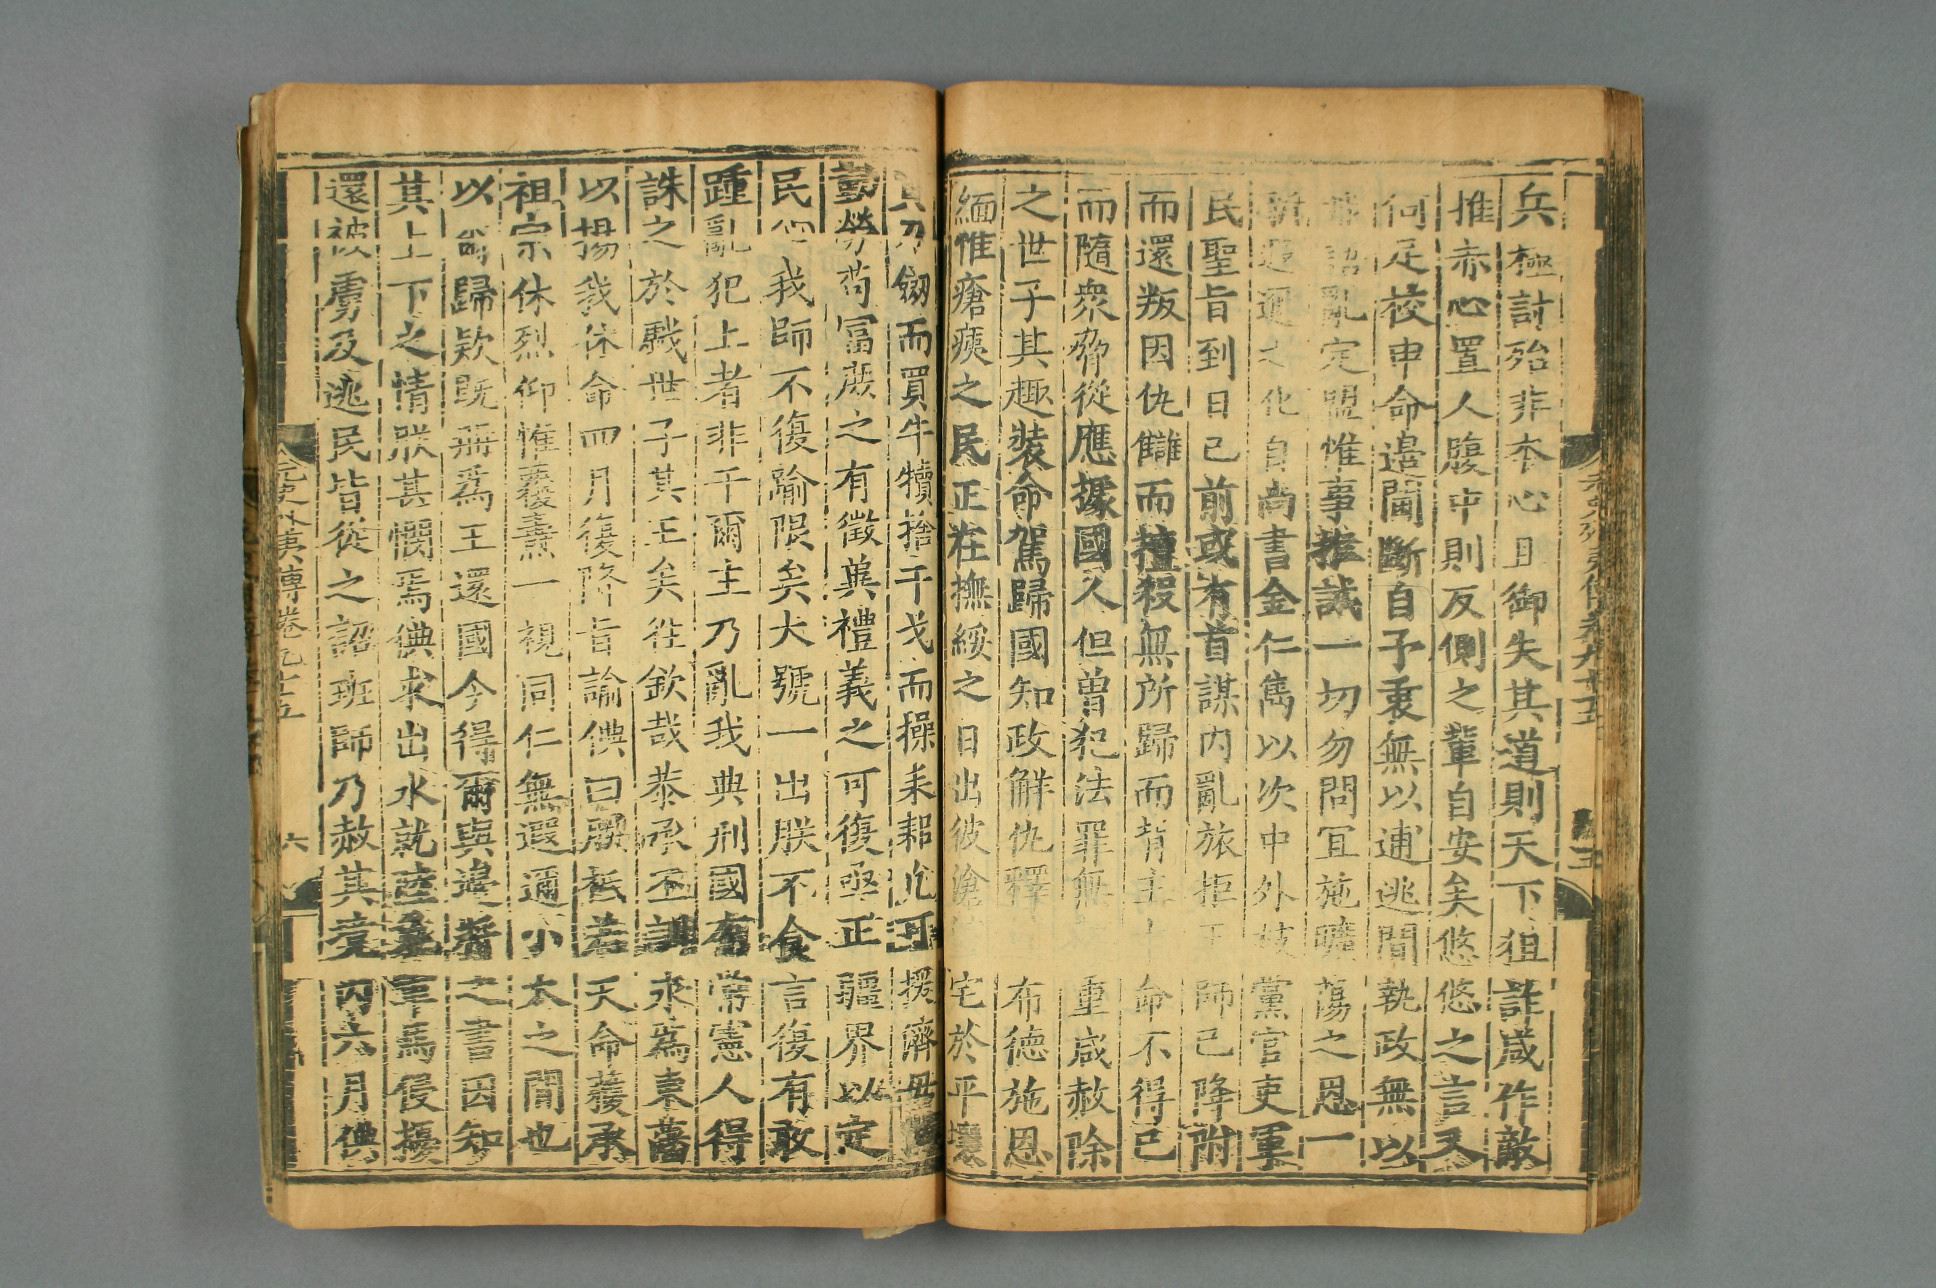 兵極計殆非本心且御失其道則天下狙詐咸作敵
推赤心置人腹中則反側之輩自安矣悠悠之言又
何足校申命邊閫斷自予衷無以逋逃間執政無以
詔亂定盟惟事推誠一切勿問宜施曠蕩之恩一
新遐邇之化自尚書金仁雋以次中外枝黨官吏軍
民聖旨到日已前或有首謀内亂旅拒王師已降附
而還叛因仇讎而擅殺無所歸而背主亡命不得已
而隨衆脅從應據國人但曾犯法罪無重咸赦除
之世子其趣裝命駕歸國知政解仇釋布德施恩
緬惟瘡痍之民正在撫綏之日出彼滄宅於平壤
賣刀劒而買牛犢捨干戈而操耒耜凡可援濟毋
勤勞苟富庶之有徵兾禮義之可復亟正疆界以定
民心我師不復踰限矣大號一出朕不食言復有敢
踵亂犯上者非干爾主乃亂我典刑國有常憲人得
誅之於戲世子其王矣徃欽哉恭承丕訓永爲東蕃
以揚我休命四月復降旨諭倎曰朕祗若天命獲承
祖宗休烈仰惟覆燾一視同仁無遐邇小大之間也
以爾歸欵既冊爲王還國今得爾與邊將之書因知
其上下之情朕甚憫焉倎求出水就陸免軍馬侵擾
還被虜及逃民皆從之詔班師乃赦其境内六月倎
元史列傳卷九十五
六